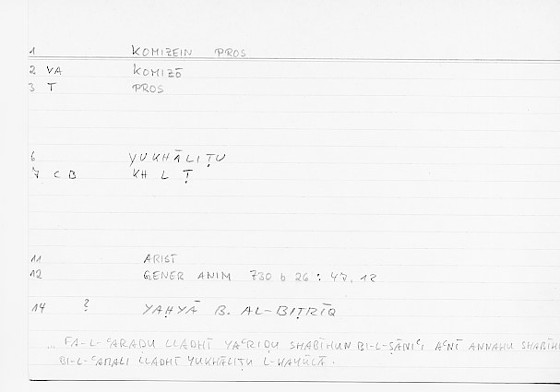 1 KOMIZEIN PROS
2 VA KOMIZŌ
3 T PROS
6 YUKHĀLIṬU
7 C B KH L Ṭ
11 ARIST
12 GENER ANIM 730 b 26 : 47, 12
14 ? YAḤYĀ B. AL-BIṬRĪQ
... FA-L-ʿARAḌU LLADHĪ YAʿRIḌU SHABĪHUN BI-L-ṢĀNIʿI AʿNĪ ANNAHU
BI-L-ʿAMALI LLADHĪ YUKHĀLIṬU L-HAYŪLĀ.